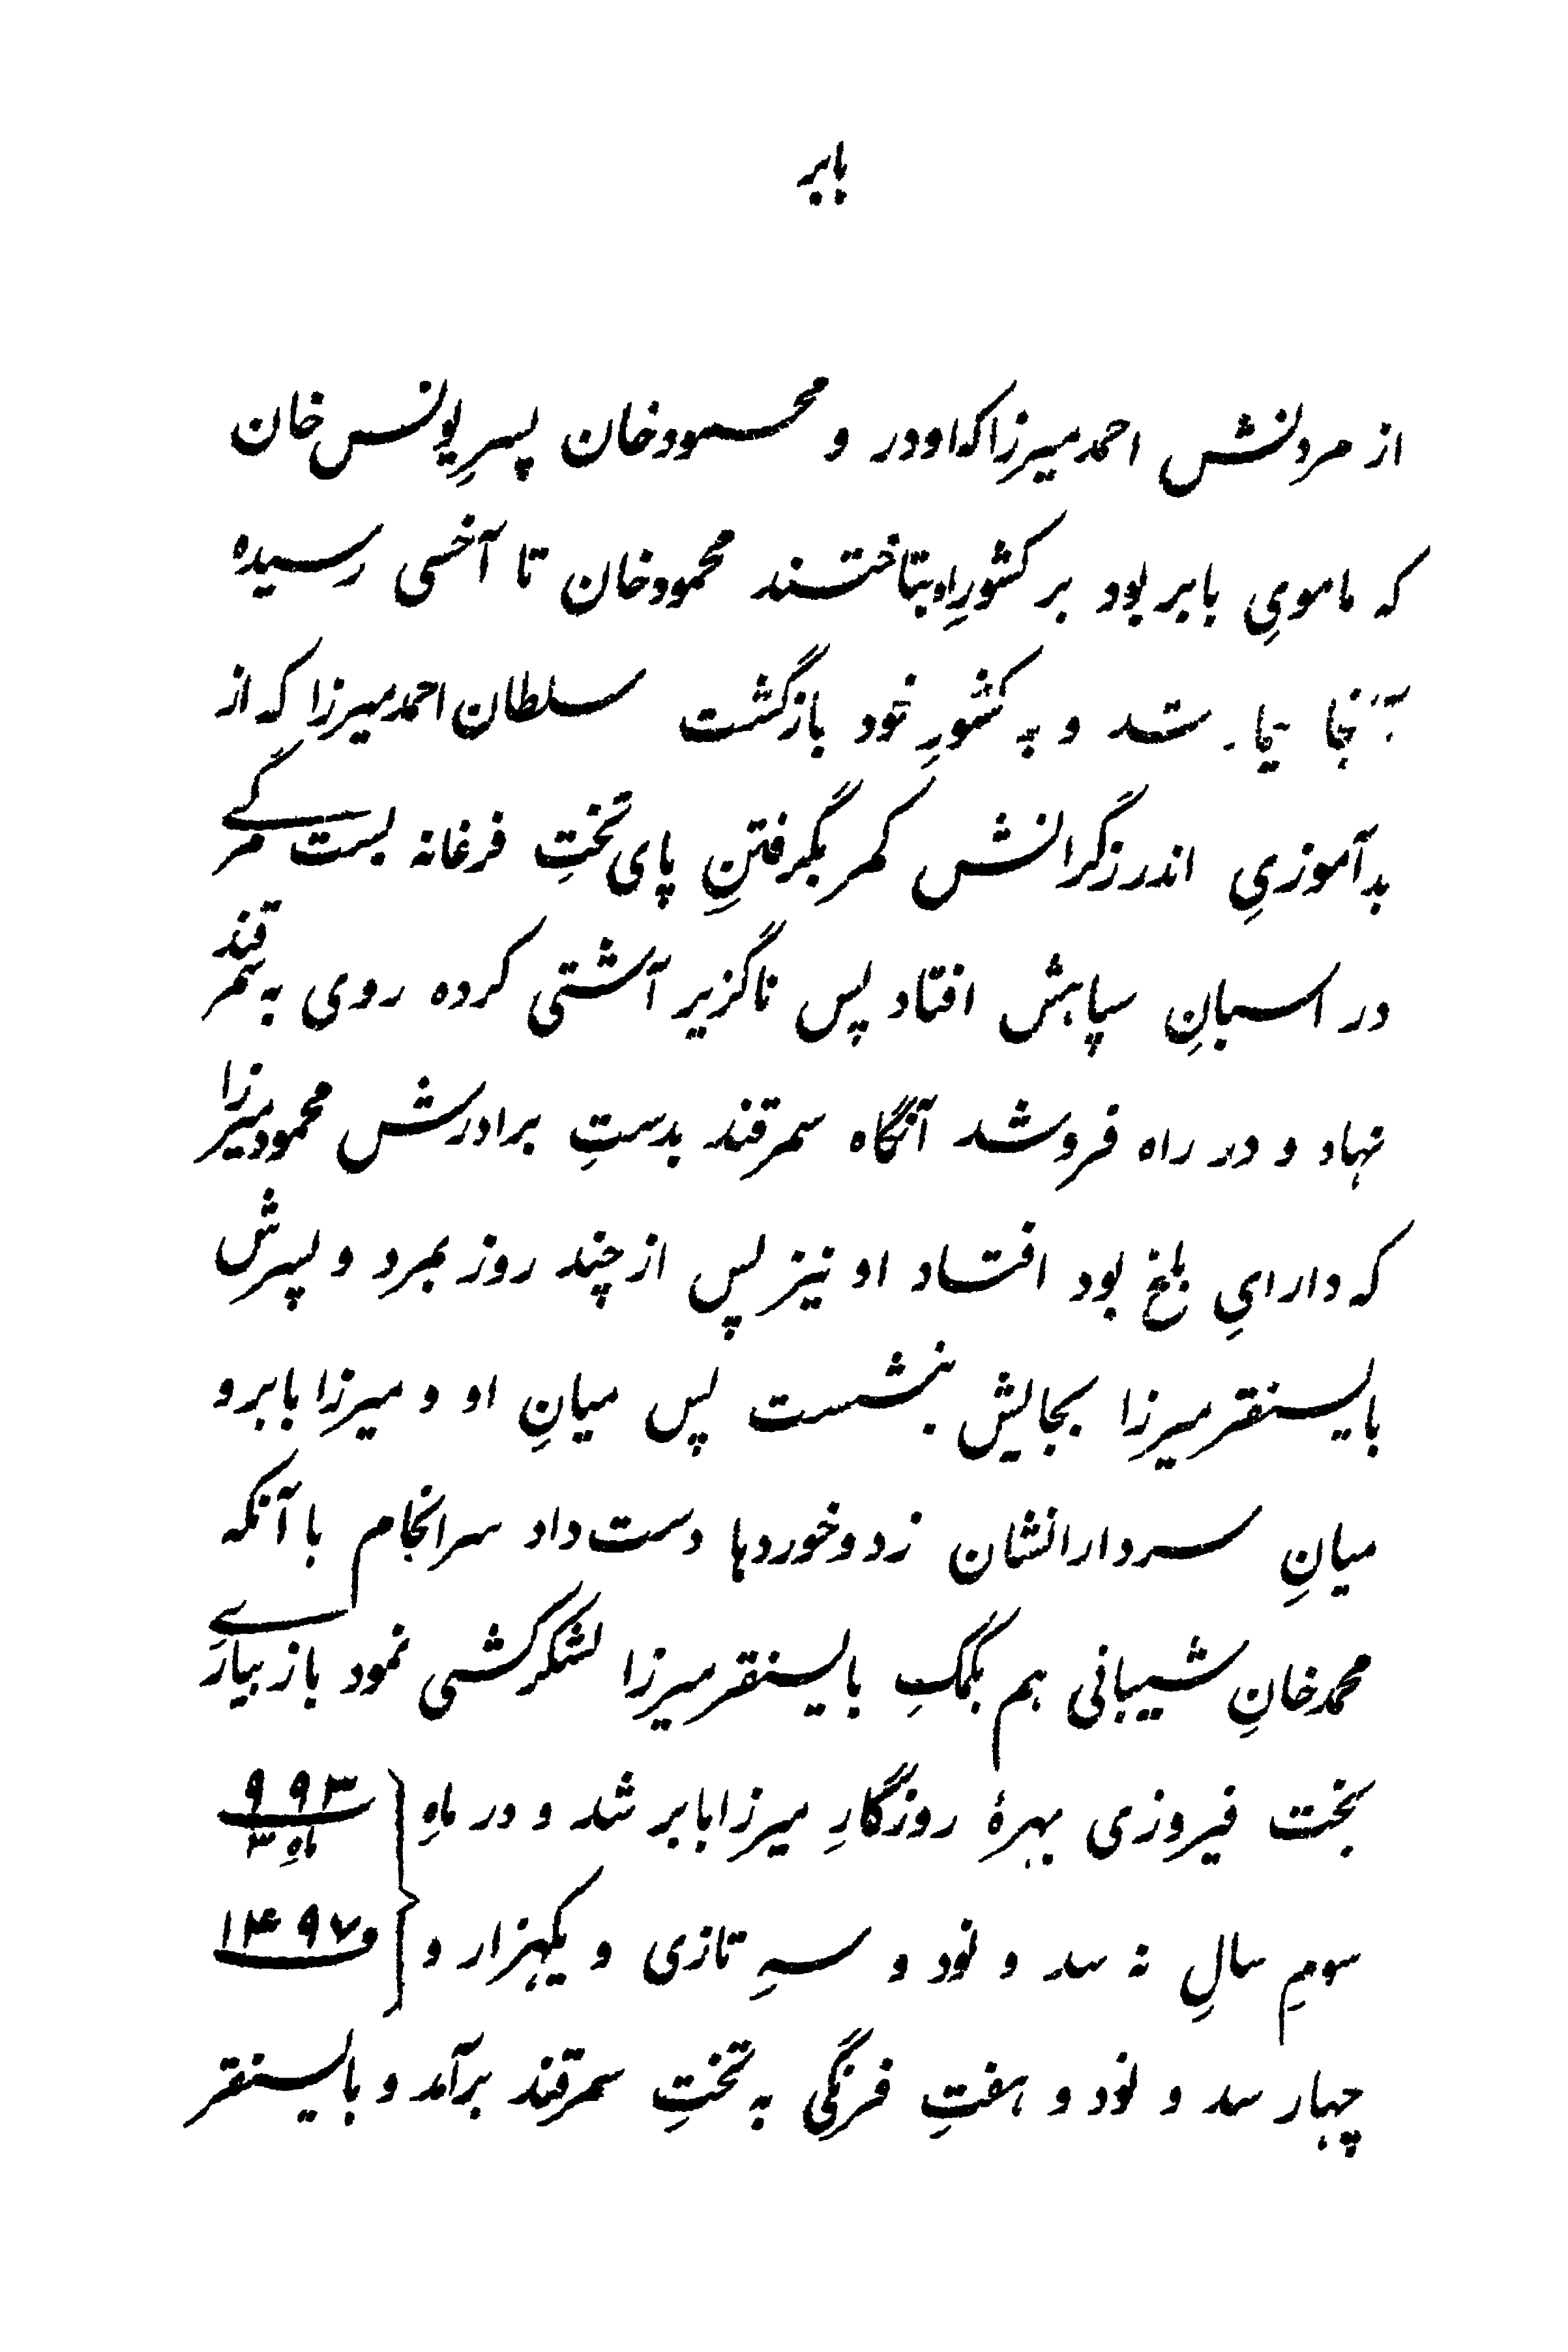 بابر
از مردنش احمدمیرزا که اودر و محمودخان پسرِ یونس خان
که ماموی بابر بود بر کشورِ او بتاختند محمودخان تا آخسی رسیده
بآنجا بیمار شد و به کشورِ خود بازگشت سلطان احمدمیرزا که از
بدآموزیِ اندرزگرانش کمر بگرفتنِ پای تختِ فرغانه بست مرگے
در اسبانِ سپاهش افتاد پس ناگزیر آشتی کرده روی به سمرقند
نهاد و در راه فروشد آنگاه سمرقند بدستِ برادرش محمودمیرزا
که دارایِ بلخ بود افتاد او نیز پس از چند روز بمرد و پسرش
بایسنقرمیرزا بجایش بنشست پس میانِ او و میرزا بابر و
میانِ سردارانشان زد و خوردها دست داد سرانجام با آنکه
محمدخانِ شیبانی هم بکمکِ بایسنقرمیرزا لشکرکشی نمود باز بیاریِ
بخت فیروزی بهرهٔ روزگارِ میرزابابر شد و در ماهِ
۹۹۳
ماهِ ۳
سومِ سالِ نه سد و نود و سهِ تازی و یکهزار و
و ۱۴۹۷
چهار سد و نود و هفتِ فرنگی به تختِ سمرقند برآمد و بایسنقر